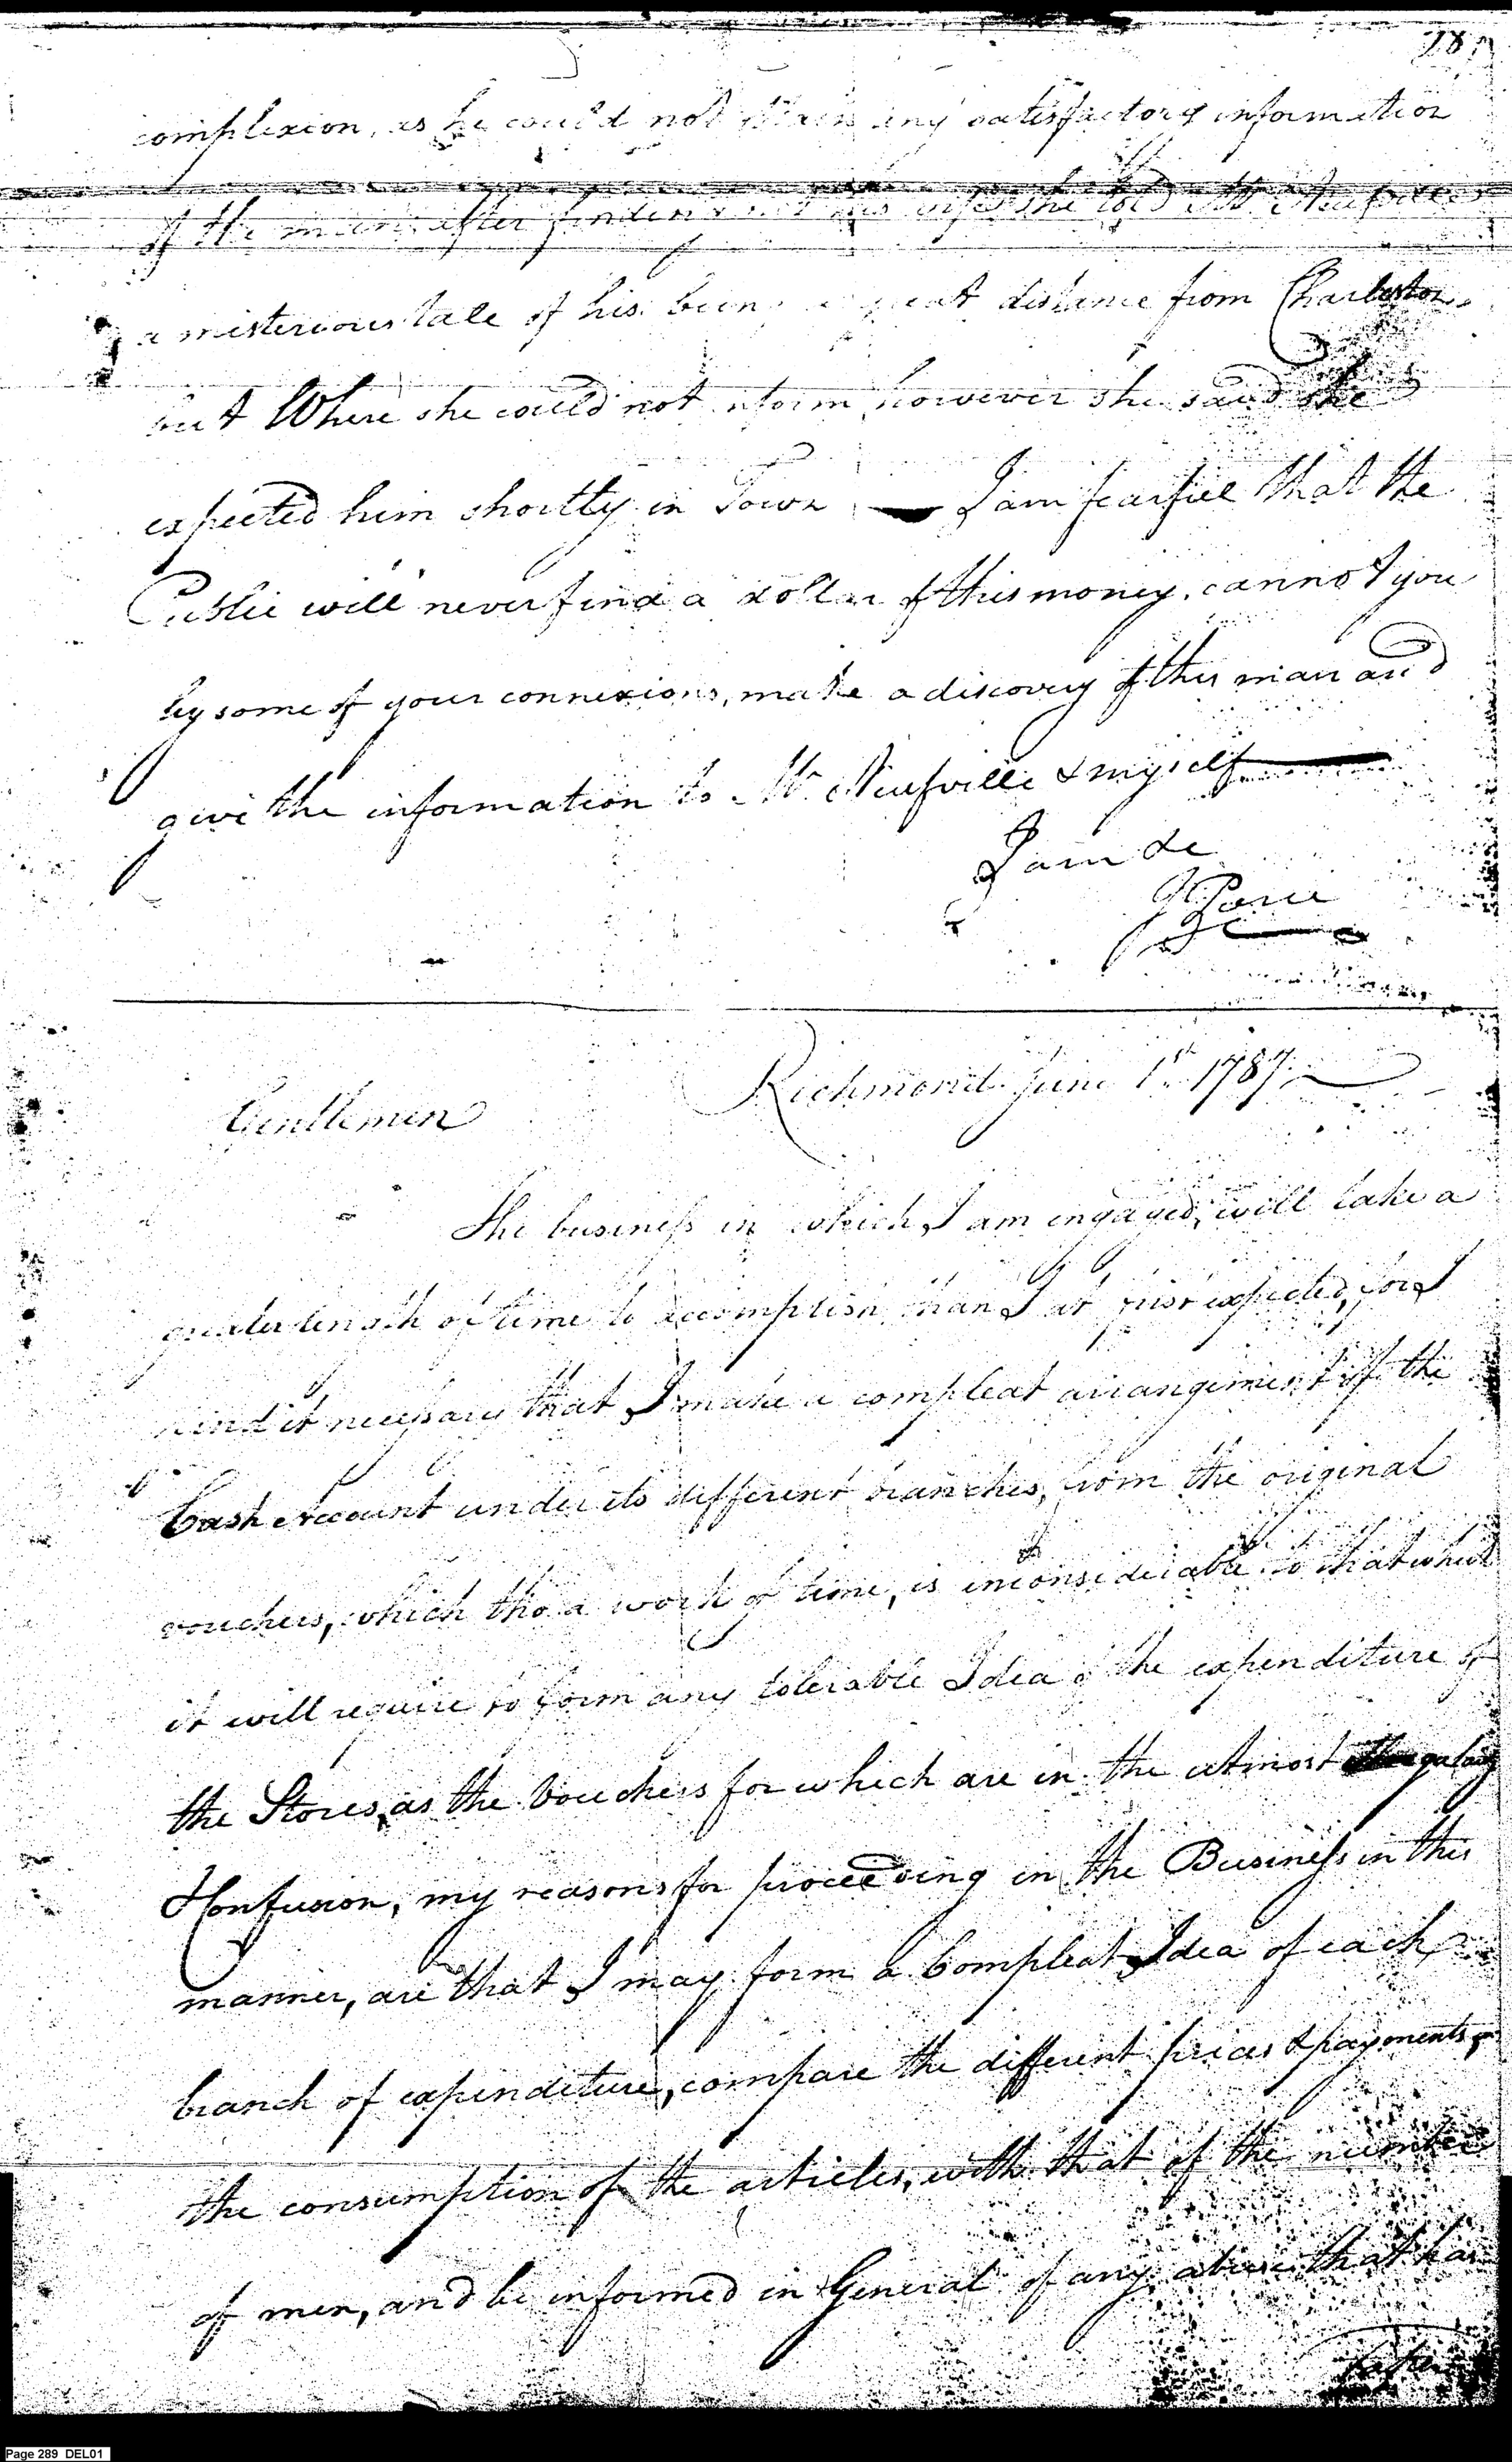 complexion, as he could not obtain any satisfactory information
of the man, after finding out his wife she told Mr. Neufville
a misterious tale of his being a great distance from Charleston,
but Where she could not inform, however she said she
expected him shortly in Town — I am fearful that the
Public will never find a dollar of this money, cannot you
by some of your connexions, make a discovery of this man and
give the information to Mr. Neufville & myself —
I am &c
Richmond June 1st 1787.
Gentlemen
The business in which I am engaged, will take a
greater length of time to accomplish than I at first expected, for I
find it necessary that I make a compleat arrangement of the
Cash Account under its different branches, from the original
vouchers, which tho' a work of time, is inconsiderable to that which
it will require to form any tolerable Idea of the expenditure of
the Stores, as the Vouchers for which are in the utmost
Confusion, my reasons for proceeding in the Business in this
manner, are that I may form a Compleat Idea of each
branch of expenditure, compare the different prices & payments,
the consumption of the articles, with that of the number
of men, and be informed in General of any abuse that has
Page 289 DEL01